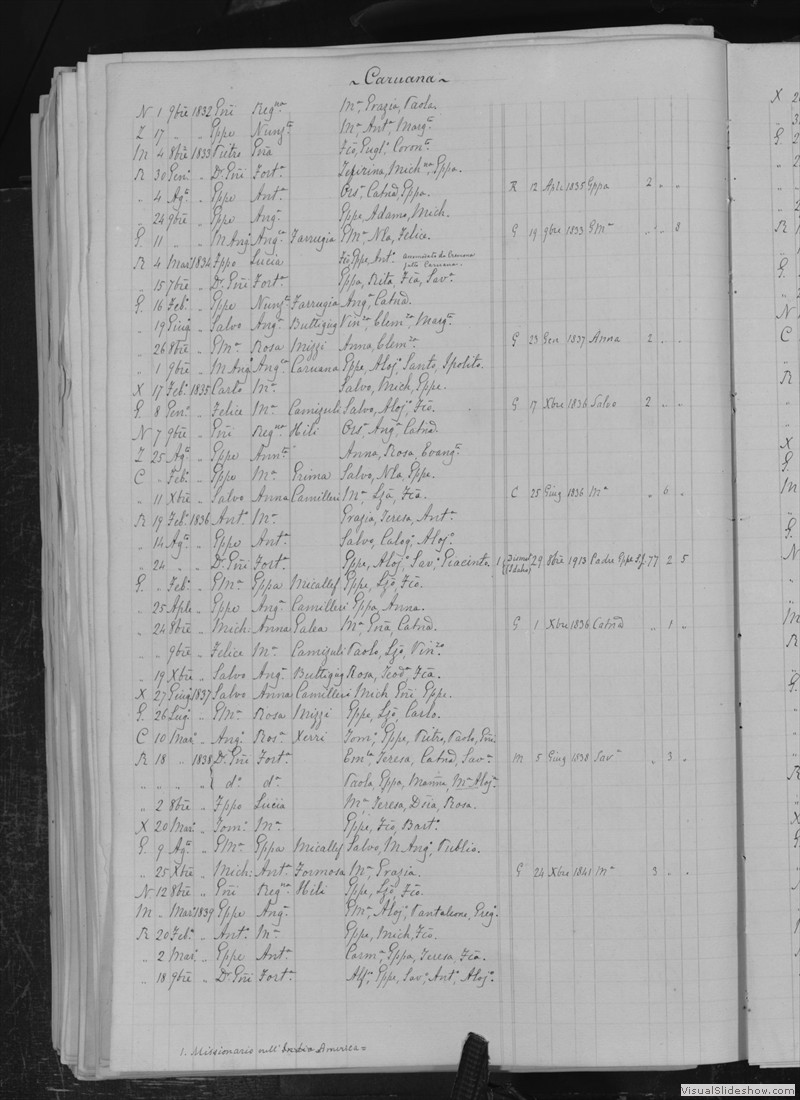 ~ Caruana ~
N 1 9bre 1832 Eñi Reg.na Ma, Grazia, Paola.
Z 17 " " Gppe Nunz.ta Ma, Anta, Marga.
M 4 8bre 1833 Pietro Gña Fco, Coron.a
R 30 Gen.o " Dr. Eñi Fort.a Mich.na, Gppa.
" 4 Ago " Gppe Anta Ors.a Catna, Gppa. R 12 Aple 1835 Gppa 2 " "
" 24 9bre " Gppe Anga Gppe, Adamo, Mich.
G. 11 " " M.Ango Ang.ca Farrugia GMa, Nla, Felice. G 19 9bre 1833 GMa " " 8
R 4 Mar. 1834 Fppo Lucia Gppe, Anto
" 15 7bre " Dr. Eñi Fort.a Gppa, Rita, Fca, Sav.a
G. 16 Feb.o " Gppe Nunz.ta Farrugia Anga, Catna.
" 19 Giug " Salvo Anga Buttigieg Vin.za, Clem.za, Marga.
" 26 8bre " GMa Rosa Mizzi Anna, Clem.za G 23 Gen 1837 Anna 2 " "
" 1 9bre " M.Ango Ang.ca Caruana Gppe, Aloj.o Santo, Ipolito.
X 17 Feb.o 1835 Carlo Ma Salvo, Mich, Gppe.
G. 8 Gen.o " Felice Ma Camizuli Salvo, Aloj.o, Fco. G 17 Xbre 1836 Salvo 2 " "
N 7 9bre " Eñi Reg.na Hili Ors.a Anga, Catna.
Z 25 Ago " Gppe Ann.ta Anna, Rosa, Evang.ta
C " Feb.o " Gppe Ma Grima Salvo, Nla, Gppe.
" 11 Xbre " Salvo Anna Camilleri Ma, Lza, Fca. C 25 Giug 1836 Ma " 6 "
R 19 Feb.o 1836 Anto Ma Grazia, Teresa, Anta
" 14 Ago " Gppe Anta Salvo, Calog.o, Aloj.o
" 24 " " Dr. Eñi Fort.a Gppe, Aloj.o, Sav.o, Giacinto. 1 (Idaho) 29 8bre 1913 Padre Gppe 77 2 5
G. " Feb.o " GMa Gppa Micallef Gppe, Lzo, Fco.
" 25 Aple " Gppe Anga Camilleri Gppa, Anna.
" 24 8bre " Mich: Anna Galea Ma, Gña, Catna. G 1 Xbre 1836 Catna " 1 "
" " 9bre " Felice Ma Camizuli Paolo, Lzo, Vin.zo
" 19 Xbre " Salvo Anga Buttigieg Rosa, Teod.a, Fca.
X 27 Giug 1837 Salvo Anna Camilleri Mich, Eñi, Gppe.
G. 26 Lug.o " GMa Rosa Mizzi Gppe, Lzo, Carlo.
C 10 Mar. " Ango Ros.a Xerri Tom.o, Gppe, Pietro, Paolo, Eñi.
R 18 " 1838 Dr. Eñi Fort.a Teresa, Catna, Sav.a M 5 Giug 1838 Sav.a " 3 "
" " " " do do Paola, Gppa, Ma Aloj.a
" 2 8bre " Fppo Lucia Ma, Teresa, Rosa.
X 20 Mar. " Tom.o Ma Gppe, Fco, Bart.o
G. 9 Ago " GMa Gppa Micallef Salvo, M.Ango, Publio.
" 25 Xbre " Mich: Anta Formosa Ma, Grazia. G 24 Xbre 1841 Ma 3 " "
N. 12 8bre " Eñi Reg.na Hili Gppe, Lzo, Fco.
M " Mar. 1839 Gppe Anga GMa, Aloj.o, Pantaleone, Greg.o
R 20 Feb.o " Anto Ma Gppe, Mich, Fco.
" 2 Mar. " Gppe Anta Carm.a, Gppa, Teresa, Fca.
" 18 9bre " Dr. Eñi Fort.a Gppe, Sav.o, Anto, Aloj.o
1. Missionario nell' America =
VisualSlideshow.com